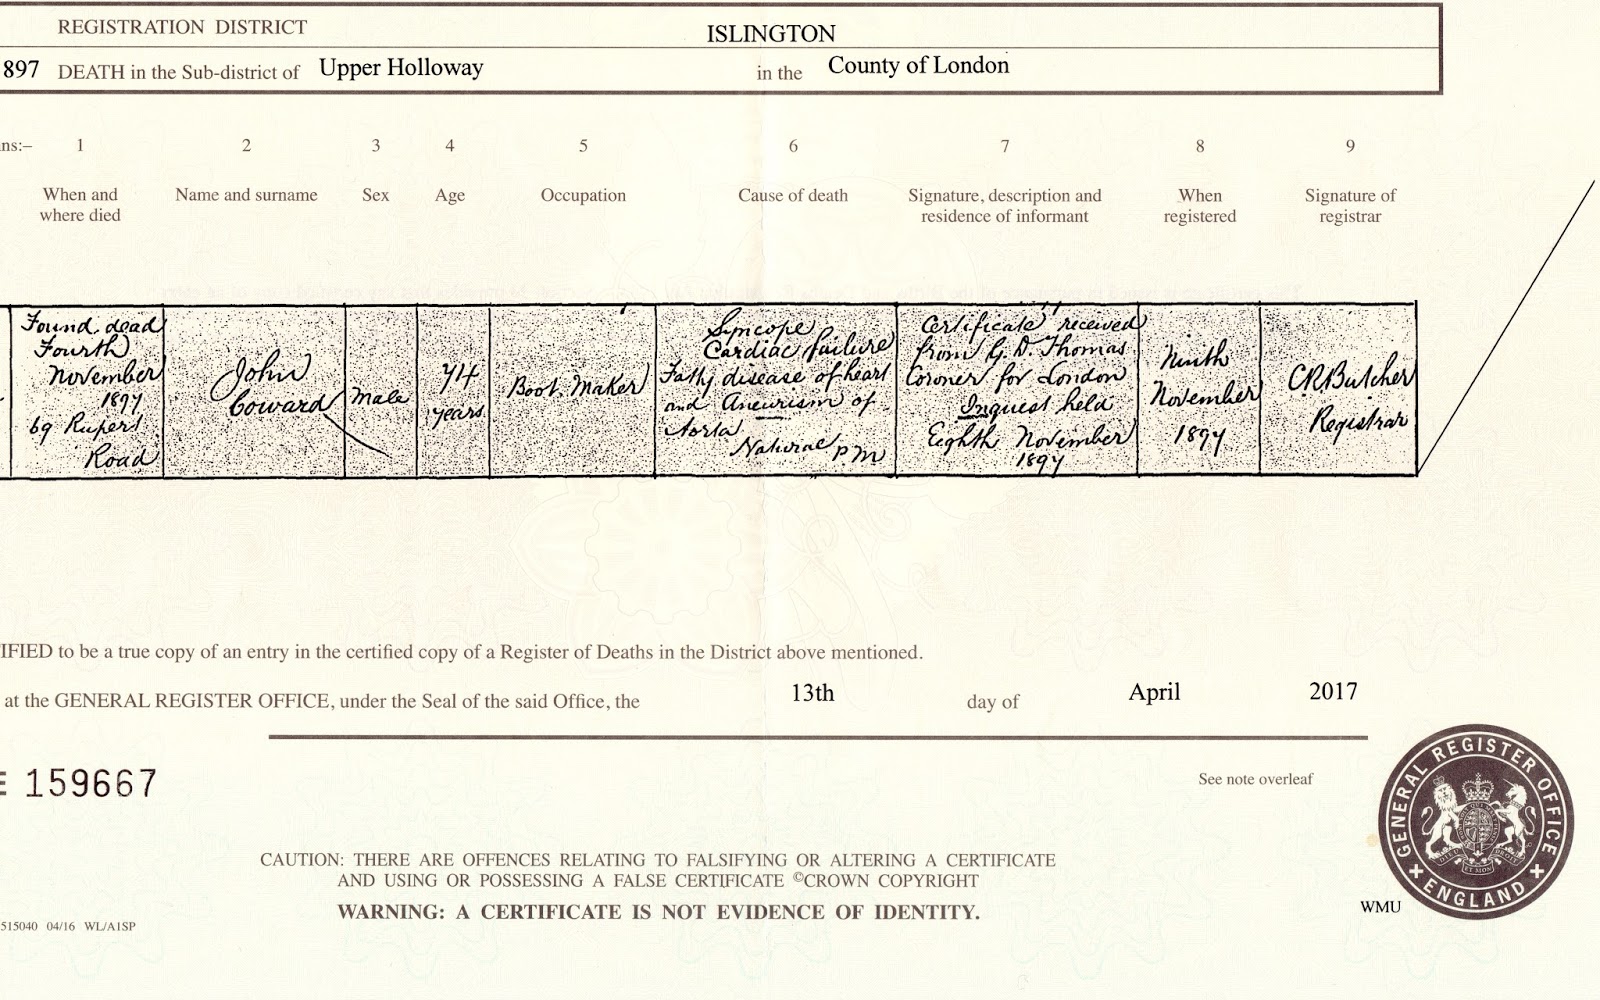 REGISTRATION DISTRICT ISLINGTON
897 DEATH in the Sub-district of Upper Holloway in the County of London
ns:– 1 2 3 4 5 6 7 8 9
When and where died
Name and surname
Sex
Age
Occupation
Cause of death
Signature, description and residence of informant
When registered
Signature of registrar
Found dead
Fourth
November
1897
69 Rupert
Road
John
Coward
Male
74
years
Boot Maker
Syncope
Cardiac failure
Fatty disease of heart
and Aneurism of
Aorta
Natural P.M
Certificate received
from G. D. Thomas
Coroner for London
Inquest held
Eighth November
1897
Ninth
November
1897
C.R.Butcher
Registrar
IFIED to be a true copy of an entry in the certified copy of a Register of Deaths in the District above mentioned.
at the GENERAL REGISTER OFFICE, under the Seal of the said Office, the 13th day of April 2017
E 159667
See note overleaf
GENERAL REGISTER OFFICE
ENGLAND
CAUTION: THERE ARE OFFENCES RELATING TO FALSIFYING OR ALTERING A CERTIFICATE
AND USING OR POSSESSING A FALSE CERTIFICATE ©CROWN COPYRIGHT
WARNING: A CERTIFICATE IS NOT EVIDENCE OF IDENTITY.
WMU
515040 04/16 WL/A1SP